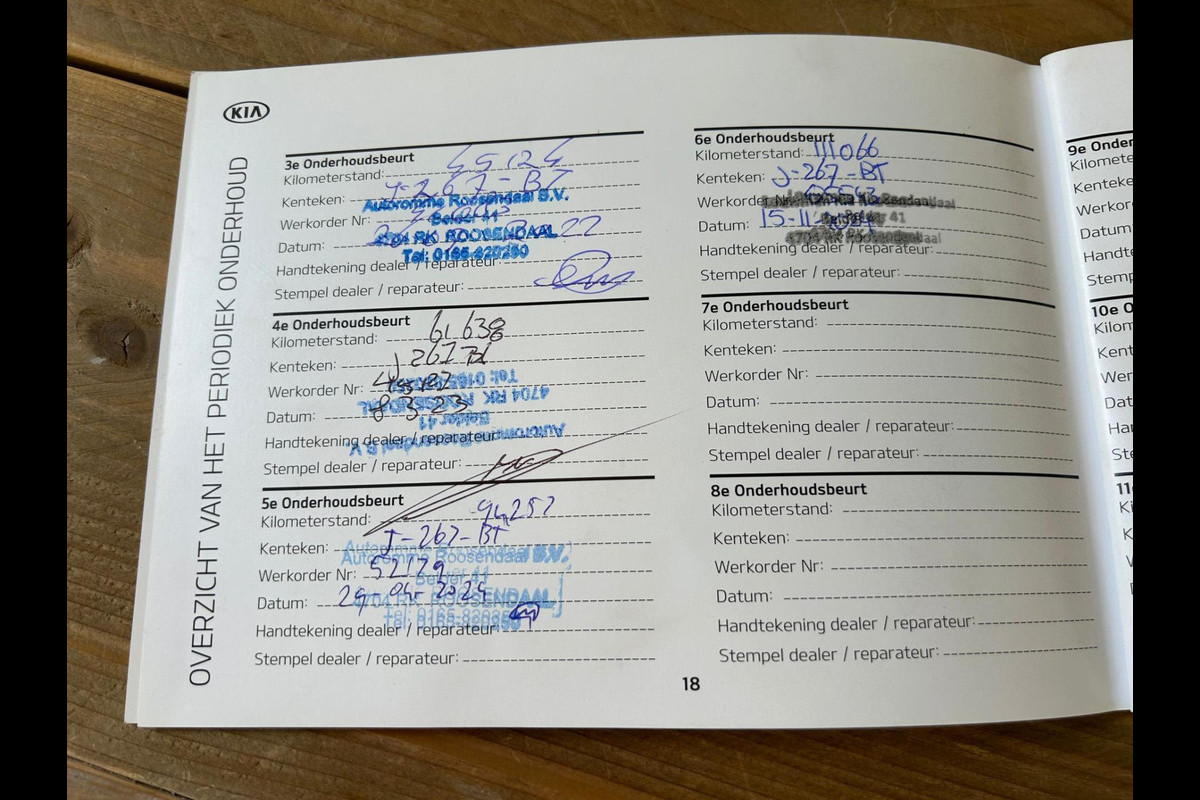 KIA
OVERZICHT VAN HET PERIODIEK ONDERHOUD
3e Onderhoudsbeurt
Kilometerstand: 45124
Kenteken: J-267-BT
Werkorder Nr:
Datum: 22
Handtekening dealer / reparateur:
Stempel dealer / reparateur:
Autoromme Roosendaal B.V.
Belder 41
4704 RK ROOSENDAAL
Tel: 0165-820250
4e Onderhoudsbeurt
Kilometerstand: 61638
Kenteken: J 267 BT
Werkorder Nr:
Datum: 8 3 23
Handtekening dealer / reparateur:
Stempel dealer / reparateur:
Autoromme Roosendaal B.V.
Belder 41
4704 RK ROOSENDAAL
Tel: 0165-820250
5e Onderhoudsbeurt
Kilometerstand: 94257
Kenteken: J-267-BT
Werkorder Nr: 52179
Datum: 29-04-2024
Handtekening dealer / reparateur:
Stempel dealer / reparateur:
Autoromme Roosendaal B.V.
Belder 41
4704 RK ROOSENDAAL
Tel: 0165-820250
6e Onderhoudsbeurt
Kilometerstand: 111066
Kenteken: J-267-BT
Werkorder Nr:
Datum: 15-11-2024
Handtekening dealer / reparateur:
Stempel dealer / reparateur:
Roosendaal
Belder 41
4704 RK Roosendaal
7e Onderhoudsbeurt
Kilometerstand:
Kenteken:
Werkorder Nr:
Datum:
Handtekening dealer / reparateur:
Stempel dealer / reparateur:
8e Onderhoudsbeurt
Kilometerstand:
Kenteken:
Werkorder Nr:
Datum:
Handtekening dealer / reparateur:
Stempel dealer / reparateur:
18
9e Onder
Kilomete
Kenteke
Werkor
Datum:
Handte
Stemp
10e O
Kilom
Kent
Wer
Dat
Har
Ste
11
K
K